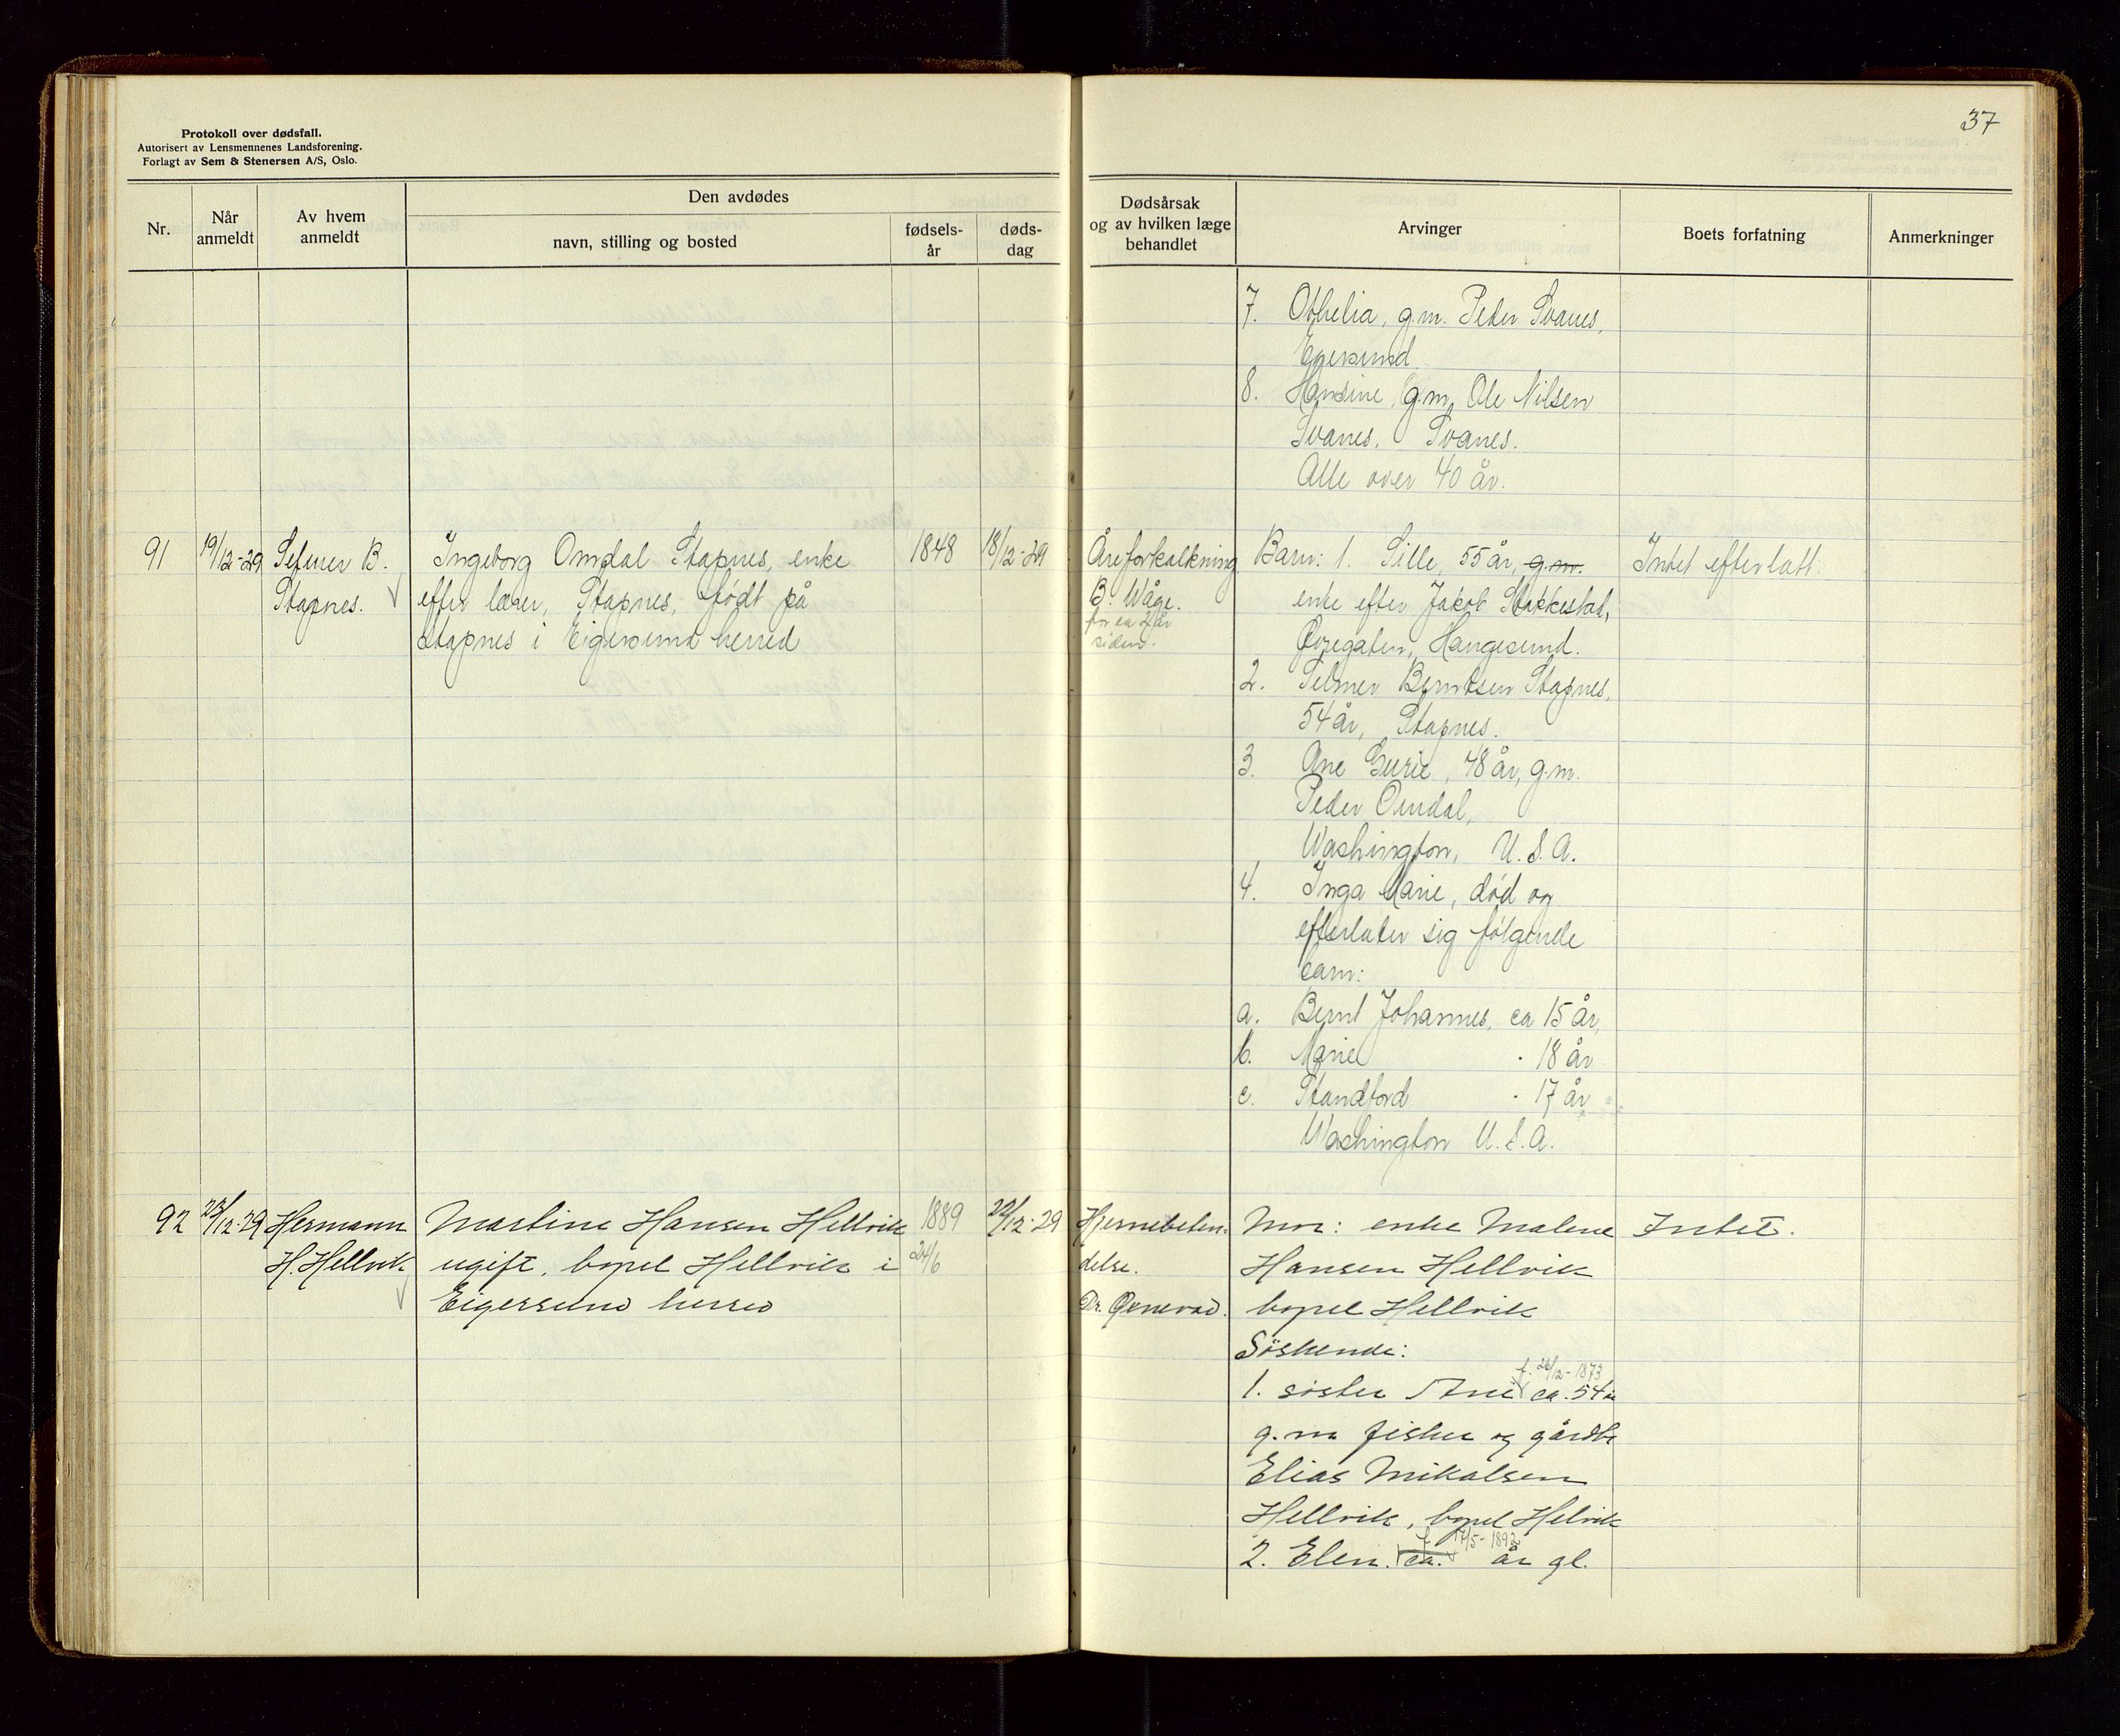 Protokoll over dødsfall.
Autorisert av Lensmennenes Landsforening.
Forlagt av Sem & Stenersen A/S, Oslo.
37
Nr.
Når anmeldt
Av hvem anmeldt
Den avdødes
navn, stilling og bosted
fødsels-
år
døds-
dag
Dødsårsak
og av hvilken læge
behandlet
Arvinger
Boets forfatning
Anmerkninger
7. Othelia, g.m. Peder Svanes,
Egersund.
8. Hansine, g.m. Ole Nilsen
Svanes, Svanes.
Alle over 40 år.
91
19/12-29
Selmer B.
Stapnes.
Ingeborg Omdal Stapnes, enke
efter lærer, Stapnes, født på
Stapnes i Eigersund herred
1848
18/12-29
Åreforkalkning
B. Wåge.
for ca 2 år
siden.
Barn: 1. Sille, 55 år, g.m.
enke efter Jakob Stakkestad,
Øvregaten, Haugesund.
2. Selmer Berntsen Stapnes,
54 år, Stapnes.
3. Ane Gurie, 48 år, g.m.
Peder Omdal,
Washington, U.S.A.
4. Inga Marie, død og
efterlater sig følgende
barn:
a. Bernt Johannes, ca 15 år,
b. Marie - 18 år
c. Standford - 17 år
Washington U.S.A.
Intet efterlatt.
92
23/12-29
Hermann
H. Hellvik
Martine Hansen Hellvik
ugift, bopel Hellvik i
Eigersund herred
1889
24/6
22/12-29
Hjernebeten-
delse.
Dr.
Mor: enke Malene
Hansen Hellvik
bopel Hellvik
Søskende:
f. 26/12-1873
1. søster Ane ca. 54 år
g.m fisker og gårdbr
Elias Mikalsen
Hellvik, bopel Helvik
f. 17/5-1892
2. Elen. ca. år gl.
Intet.